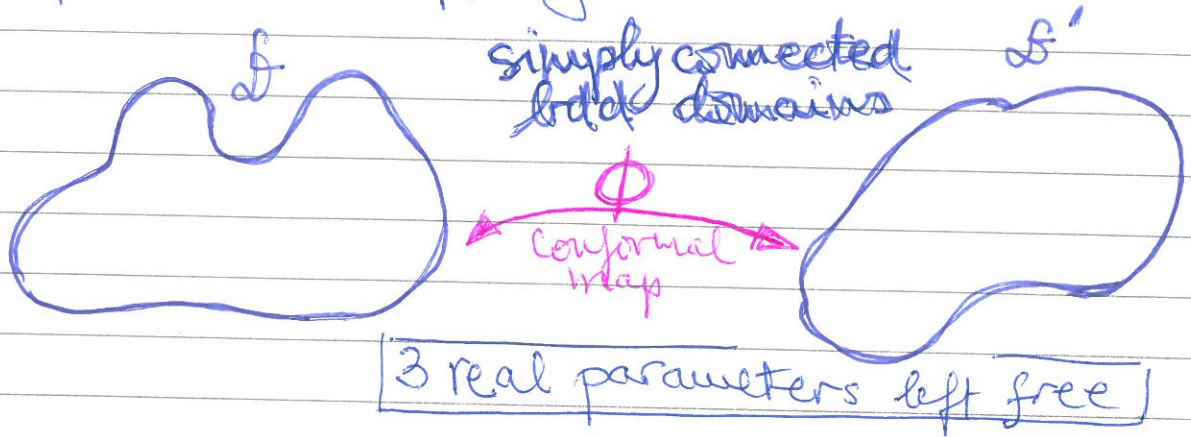 D
simply connected
bdd domains
D'
Φ
conformal
map
3 real parameters left free